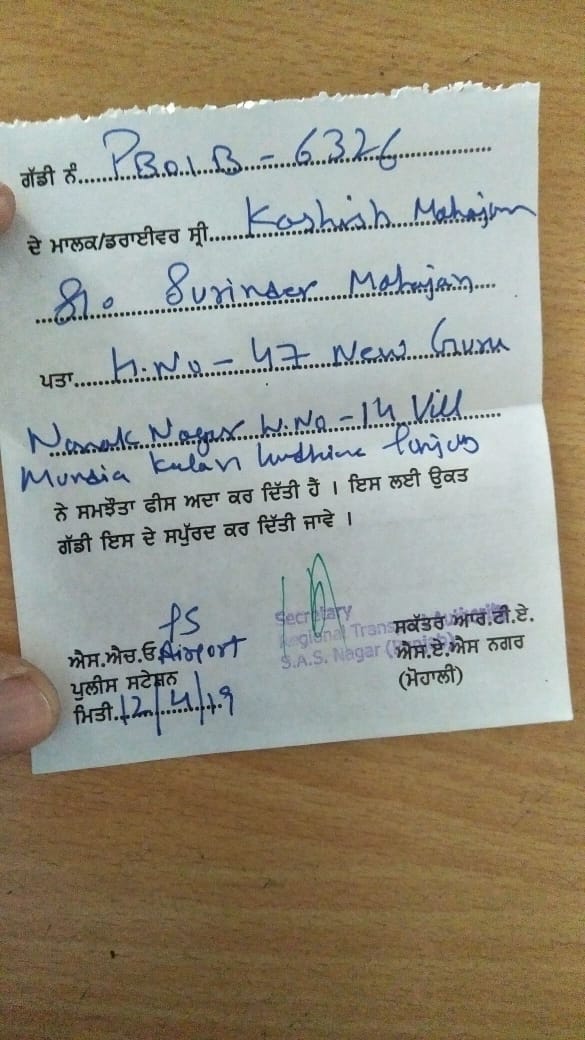 ਗੱਡੀ ਨੰ.....PB01B - 6326
ਦੇ ਮਾਲਕ/ਡਰਾਈਵਰ ਸ੍ਰੀ.....Kashish Mahajan
S/o Surinder Mahajan
ਪਤਾ.....H.No - 47 New Guru
Nanak Nagar W.No - 14 Vill
Mundia Kalan Ludhiana Punjab
ਨੇ ਸਮਝੌਤਾ ਫੀਸ ਅਦਾ ਕਰ ਦਿੱਤੀ ਹੈਂ । ਇਸ ਲਈ ਉਕਤ
ਗੱਡੀ ਇਸ ਦੇ ਸਪੁੱਰਦ ਕਰ ਦਿੱਤੀ ਜਾਵੇ ।
PS
ਐਸ.ਐਚ.ਓ Airport
ਪੁਲੀਸ ਸਟੇਸ਼ਨ
ਮਿਤੀ.12/4/19
Secretary
Regional Transport Authority
S.A.S. Nagar (Punjab)
ਸਕੱਤਰ ਆਰ.ਟੀ.ਏ.
ਐਸ.ਏ.ਐਸ ਨਗਰ
(ਮੋਹਾਲੀ)